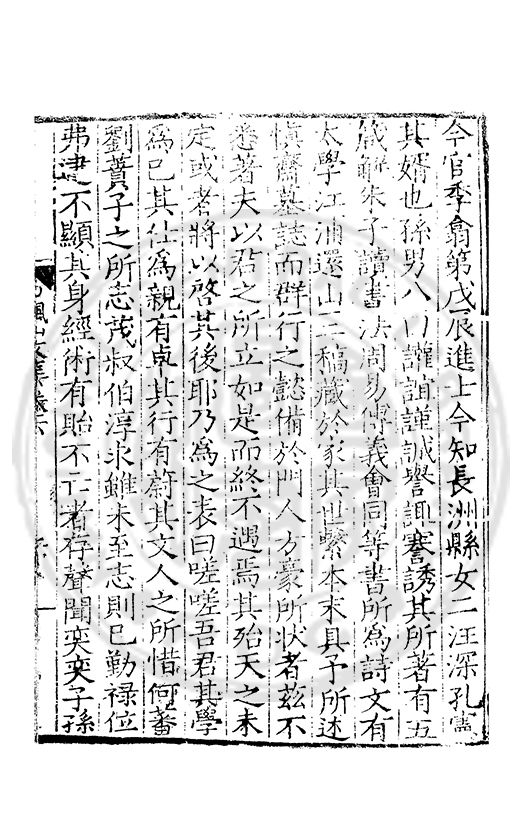 今官季翕第戊辰進士今知長洲縣女二汪深孔
其婿也孫男八口謹誼謹誠譽諷謇誘其所著有五
箴解朱子讀書法周易傳義會同等書所為詩文有
太學江浦還山三稿藏於家其世繫本末具予所述
慎齋墓誌而群行之懿備於門人方豪所状者茲不
悉著夫以君之所立如是而終不遇焉其殆天之未
定或者將以啓其後耶乃為之表曰嗟嗟吾君其學
為已其仕為親有卓其行有蔚其文人之所惜何蕃
劉蕡子之所志茂叔伯淳求雖未至志則已勤祿位
弗逮不顯其身經術有貽不亡者存聲聞奕奕子孫